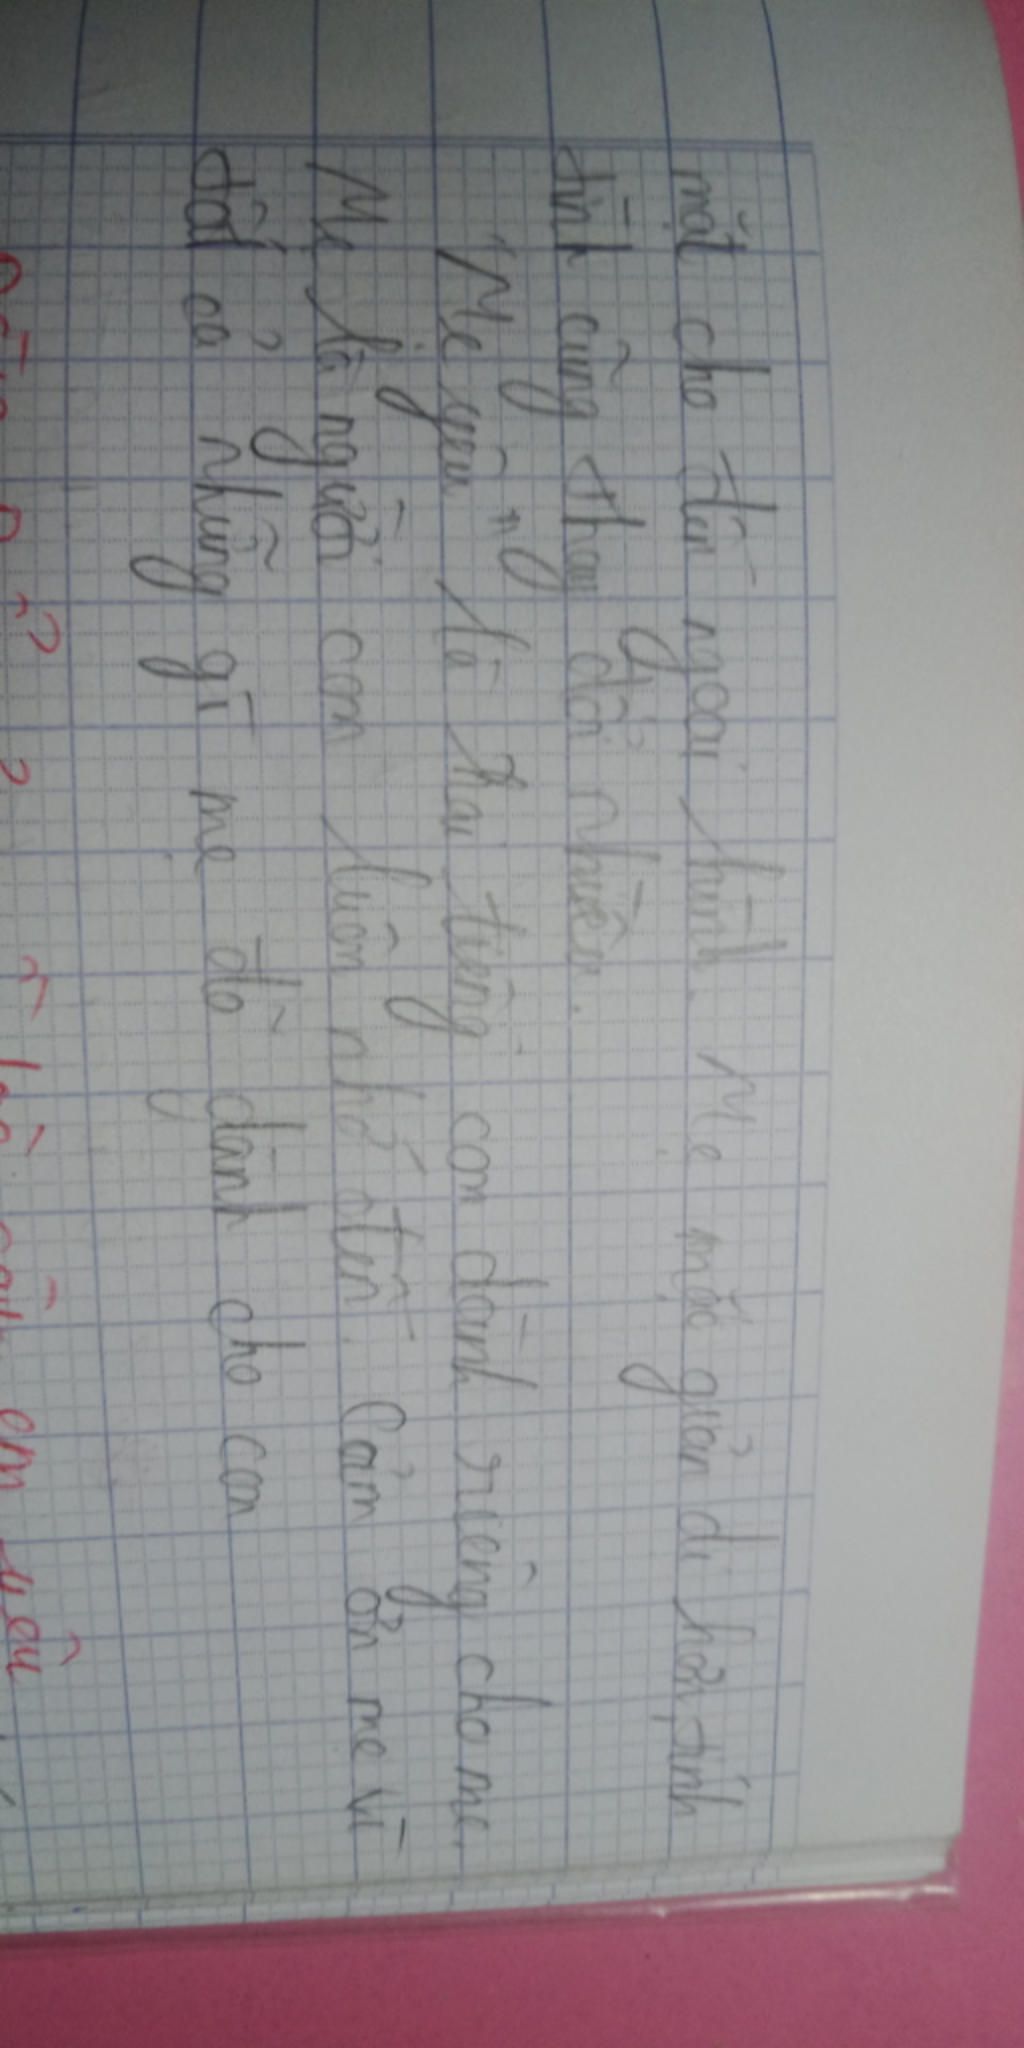 mặt cho đến ngoại hình. Mẹ mặc giản dị hơn, tính
tình cũng thay đổi nhiều.
"Mẹ yêu" là hai tiếng con dành riêng cho mẹ.
Mẹ là người con luôn nhớ đến. Cảm ơn mẹ vì
tất cả những gì mẹ đã dành cho con